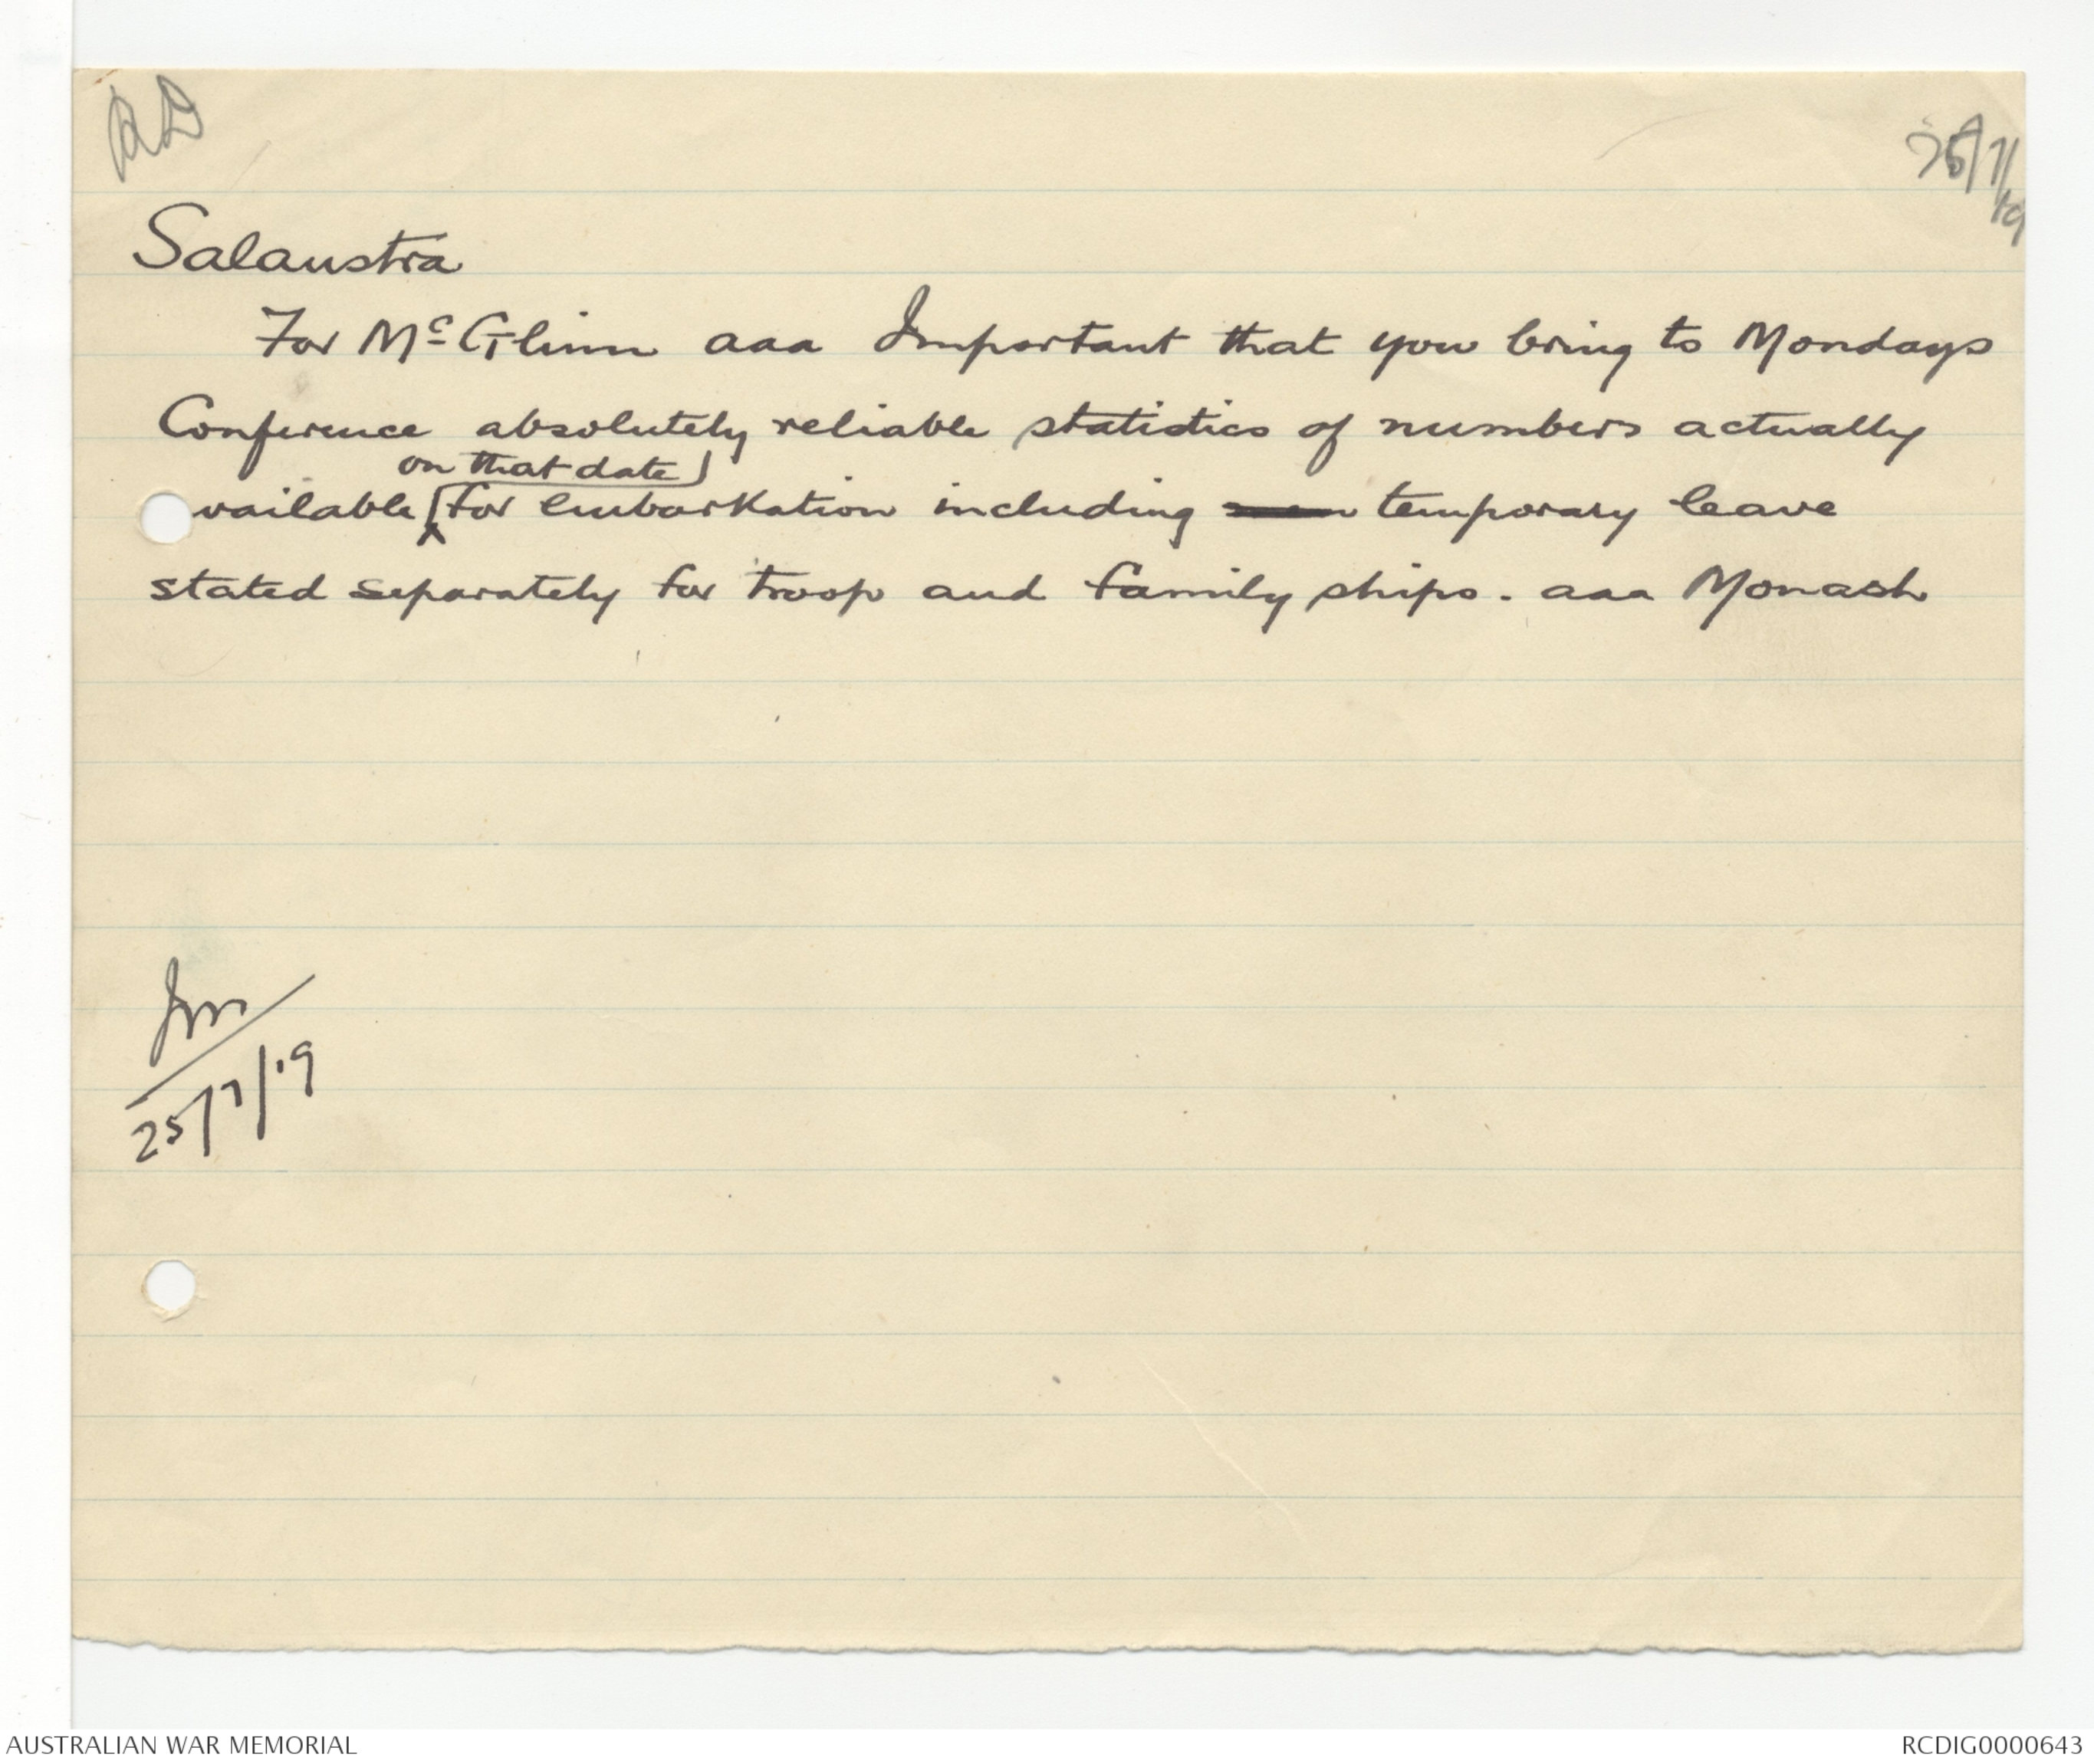 25/7/19
Salaustra
For McGlinn aaa Important that you bring to Mondays
Conference absolutely reliable statistics of numbers actually
on that date
vailable for embarkation including temporary leave
stated separately for troop and family ships. aaa Monash
JM
25/7/19
AUSTRALIAN WAR MEMORIAL
RCDIG0000643